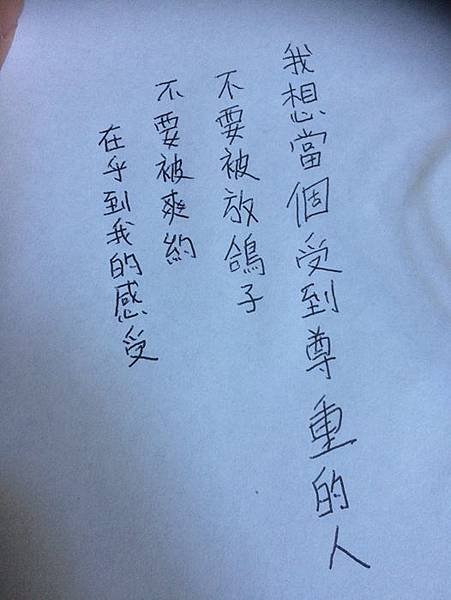 我想當個受到尊重的人
不要被放鴿子
不要被爽約
在乎到我的感受